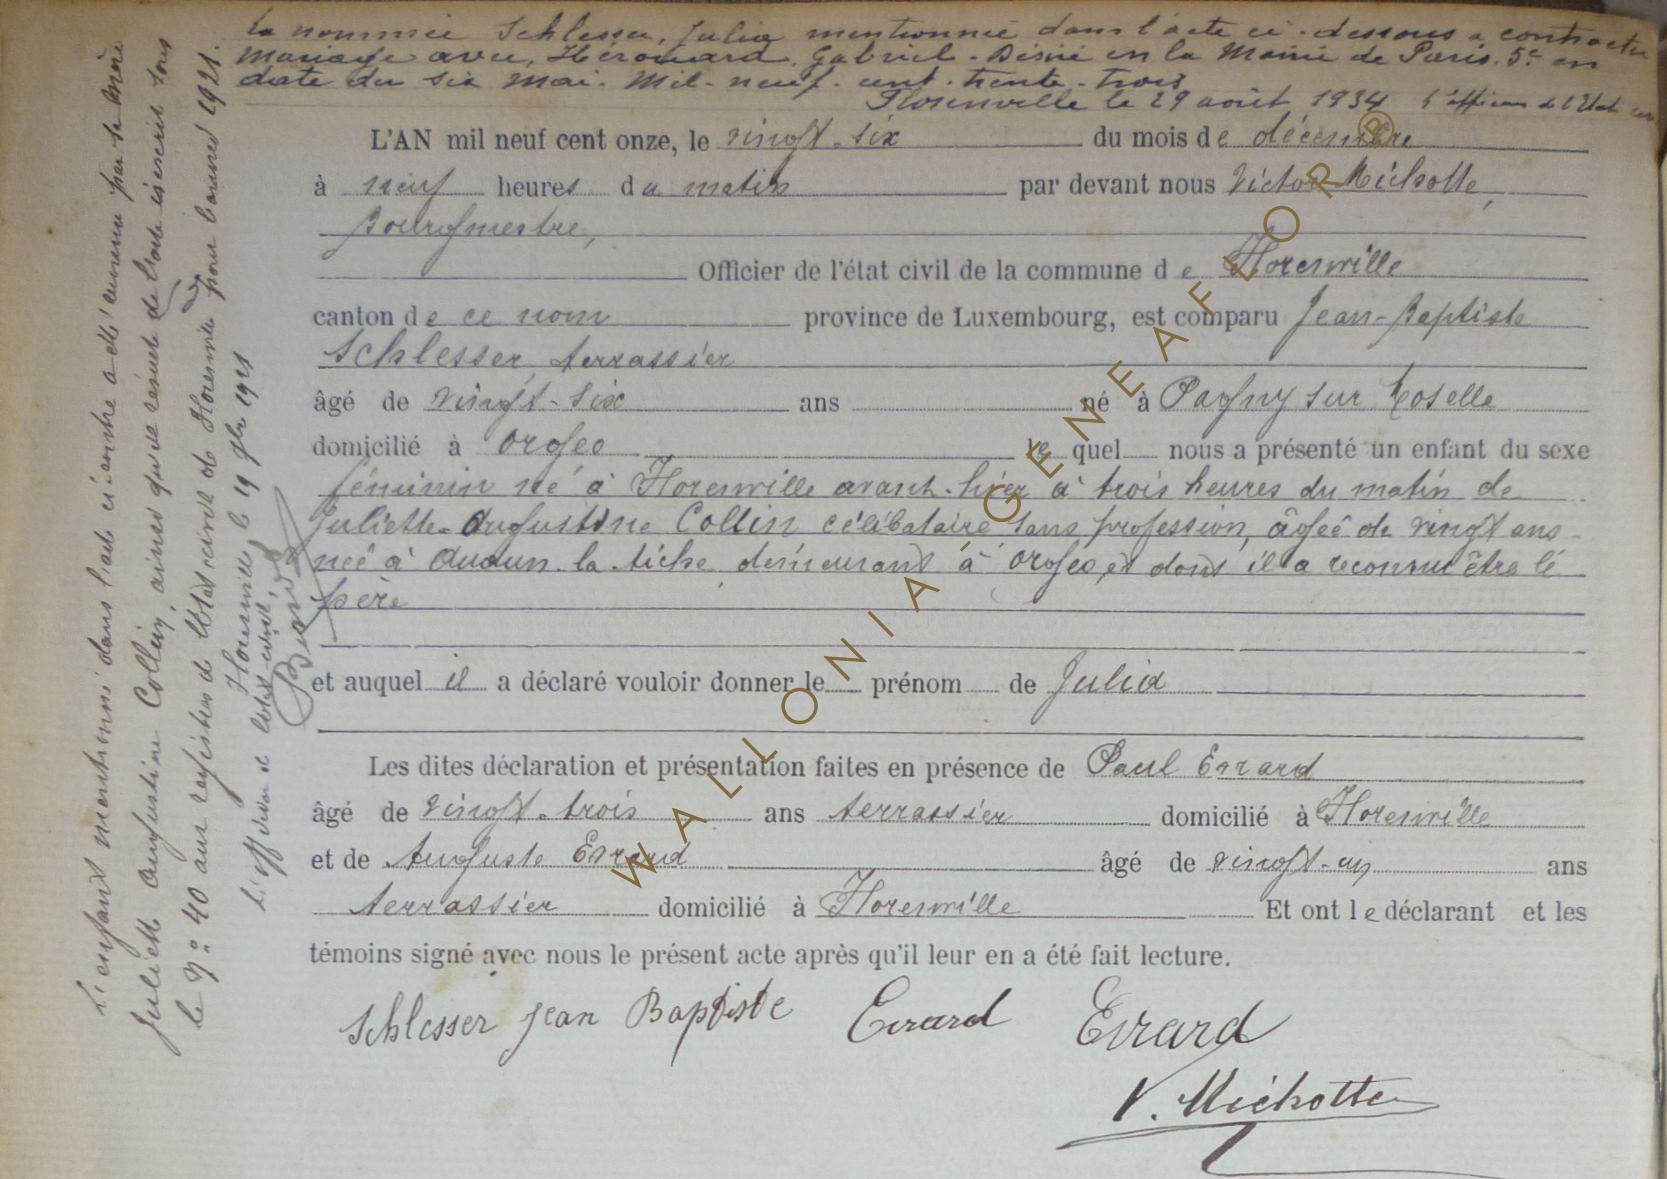 La nommée Schlesser, Julia mentionnée dans l'acte ci-dessous a contracté
mariage avec, Hérouard, Gabriel-Désiré en la Mairie de Paris 5e en
date du six mai. Mil-neuf-cent-trente-trois
Florenville le 29 août 1934 L'officier de l'Etat civ
L'AN mil neuf cent onze, le vingt-six du mois de décembre
à neuf heures du matin par devant nous Victor Michotte,
Bourgmestre,
Officier de l'état civil de la commune de Florenville
canton de ce nom province de Luxembourg, est comparu Jean-Baptiste
Schlesser, terrassier
âgé de vingt-six ans né à Pagny sur Moselle
domicilié à Orgeo lequel nous a présenté un enfant du sexe
féminin né à Florenville avant-hier à trois heures du matin de
Juliette-Augustine Collin célibataire sans profession, âgée de vingt ans
née à Audun-la-tiche demeurant à Orgeo, et dont il a reconnu être le
père
et auquel il a déclaré vouloir donner le prénom de Julia
Les dites déclaration et présentation faites en présence de Paul Evrard
âgé de vingt-trois ans terrassier domicilié à Florenville
et de Auguste Evrard âgé de vingt-un ans
terrassier domicilié à Florenville Et ont le déclarant et les
témoins signé avec nous le présent acte après qu'il leur en a été fait lecture.
Schlesser Jean Baptiste Evrard Evrard
V. Michotte
L'enfant mentionné dans l'acte ci-contre a été reconnu par sa mère
Juliette Augustine Collin, ainsi qu'il résulte de l'acte inscrit sous
le N° 40 aux registres de l'état civil de Florenville pour l'année 1921.
Florenville, le 19 9bre 1921
L'officier de l'état-civil,
WALLONIA GENEAFLOR ®